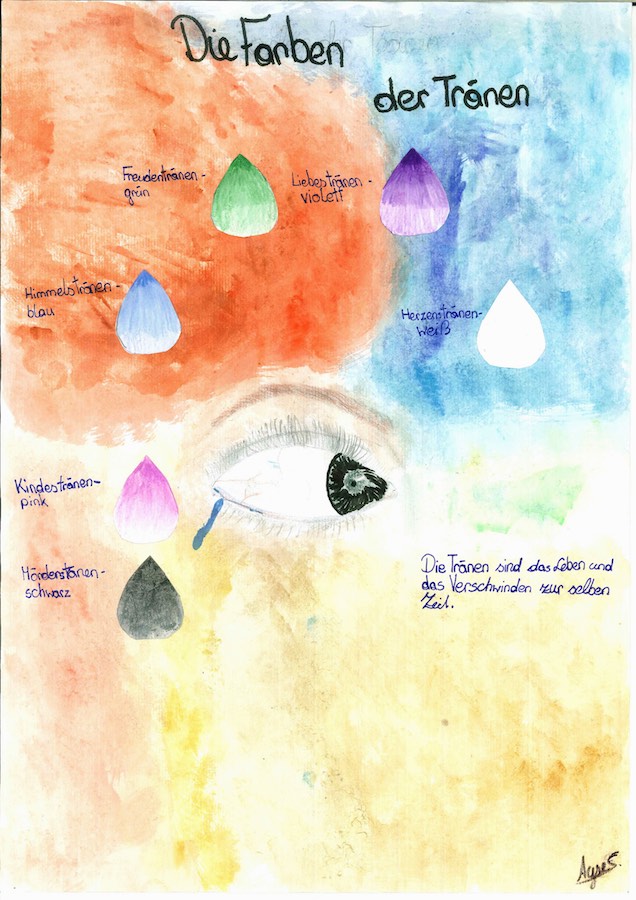 Die Farben
der Tränen
Freudentränen-
grün
Liebestränen-
violett
Himmelstränen-
blau
Herzenstränen-
weiß
Kindestränen-
pink
schwarz
Die Tränen sind das Leben und
das Verschwinden zur selben
Zeit.